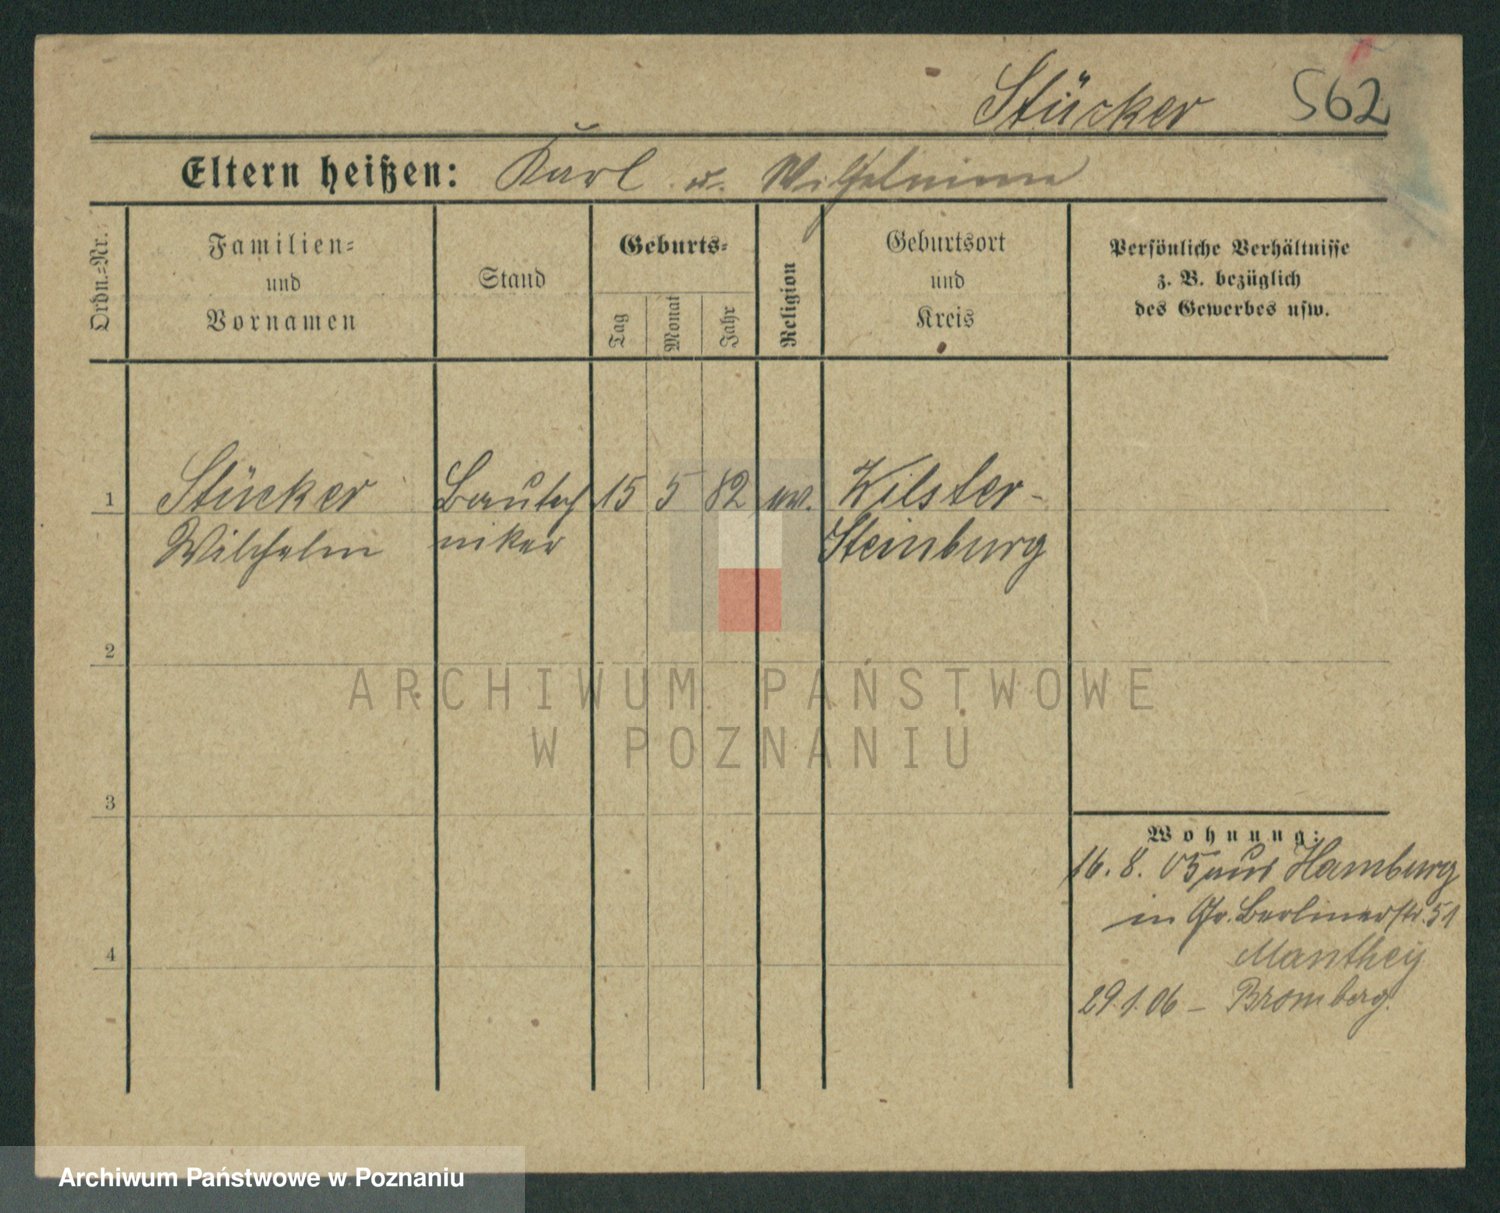 Stücker 562
Eltern heißen: Karl u. Wilhelmine
Ordn.=Nr.
Familien=
und
Vornamen
Stand
Geburts=
Tag
Monat
Jahr
Religion
Geburtsort
und
Kreis
Persönliche Verhältnisse
z. B. bezüglich
des Gewerbes usw.
1 Stücker Bautech 15 5 82 ev. Wilster-
Wilhelm niker Steinburg
2
ARCHIWUM PAŃSTWOWE
W POZNANIU
3
Wohnung:
16. 8. 05 aus Hamburg
in Gr. Berlinerstr. 51
Manthey
4
29.1.06 – Bromberg.
Archiwum Państwowe w Poznaniu